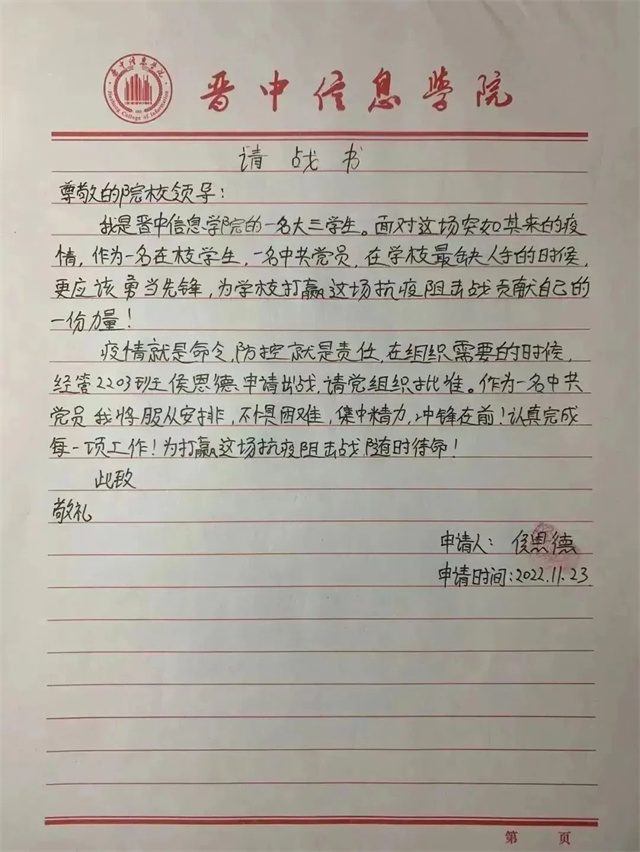 晋中信息学院
晋中信息学院
Jinzhong College of Information
请战书
尊敬的院校领导：
我是晋中信息学院的一名大三学生。面对这场突如其来的疫
情，作为一名在校学生，一名中共党员，在学校最缺人手的时候，
更应该勇当先锋，为学校打赢这场抗疫阻击战贡献自己的
一份力量！
疫情就是命令，防控就是责任，在组织需要的时候，
经管2203班侯恩德申请出战，请党组织批准。作为一名中共
党员我将服从安排，不惧困难，集中精力，冲锋在前！认真完成
每一项工作！为打赢这场抗疫阻击战随时待命！
此致
敬礼
申请人：侯恩德
申请时间：2022.11.23
第 页